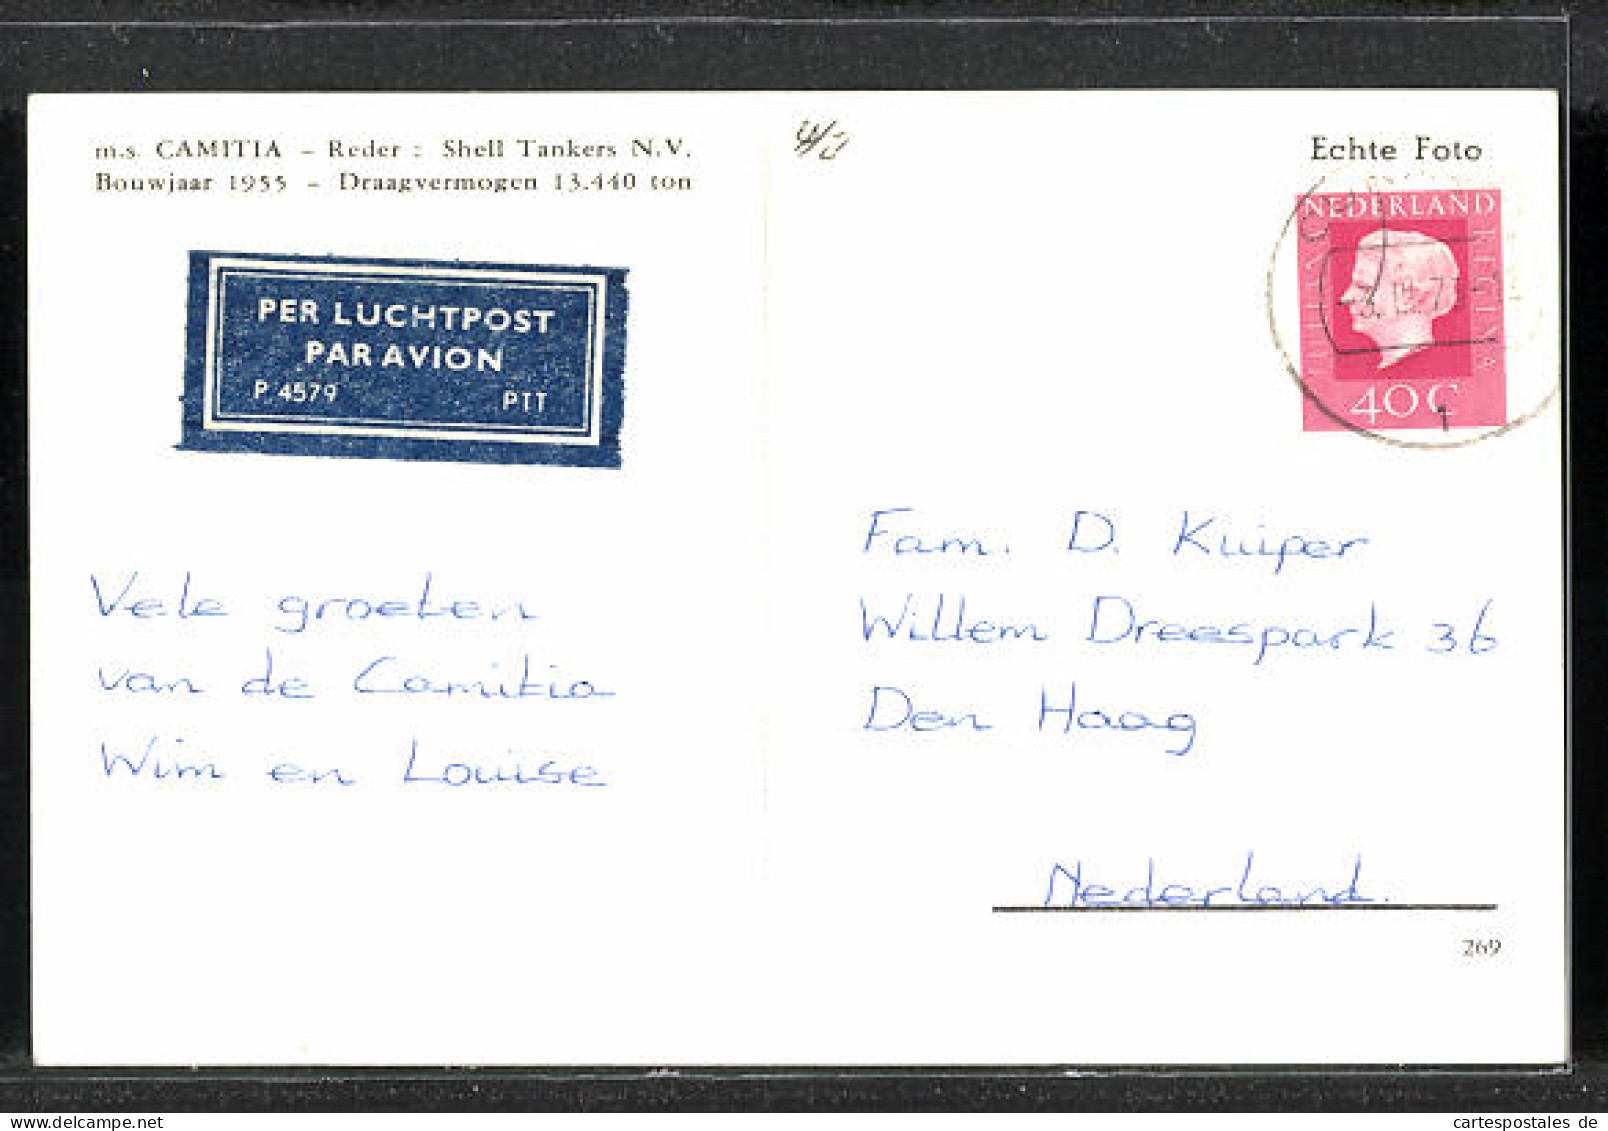 m.s. CAMITIA – Reder : Shell Tankers N.V.
Bouwjaar 1955 – Draagvermogen 13.440 ton
PER LUCHTPOST
PAR AVION
P. 4579 PTT
Vele groeten
van de Camitia
Wim en Louise
Echte Foto
NEDERLAND
JULIANA REGINA
40 C
1
Fam. D. Kuiper
Willem Dreespark 36
Den Haag
Nederland.
269
cartespostales de